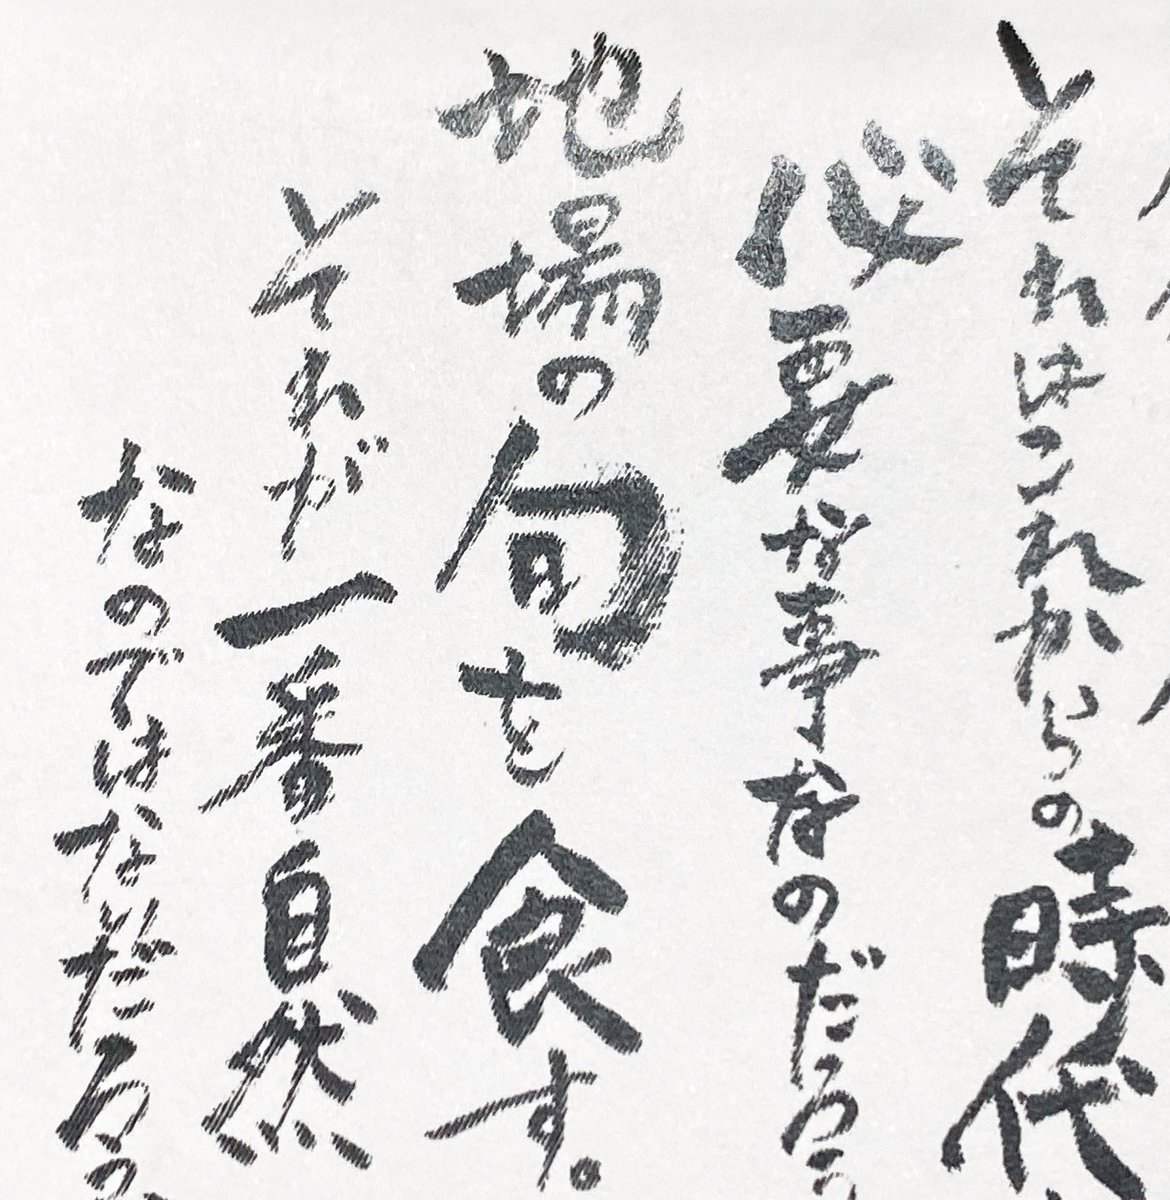 それはこれからの時代
必要な事なのだろう
地場の旬を食す。
それが一番自然
なのではなかだろう